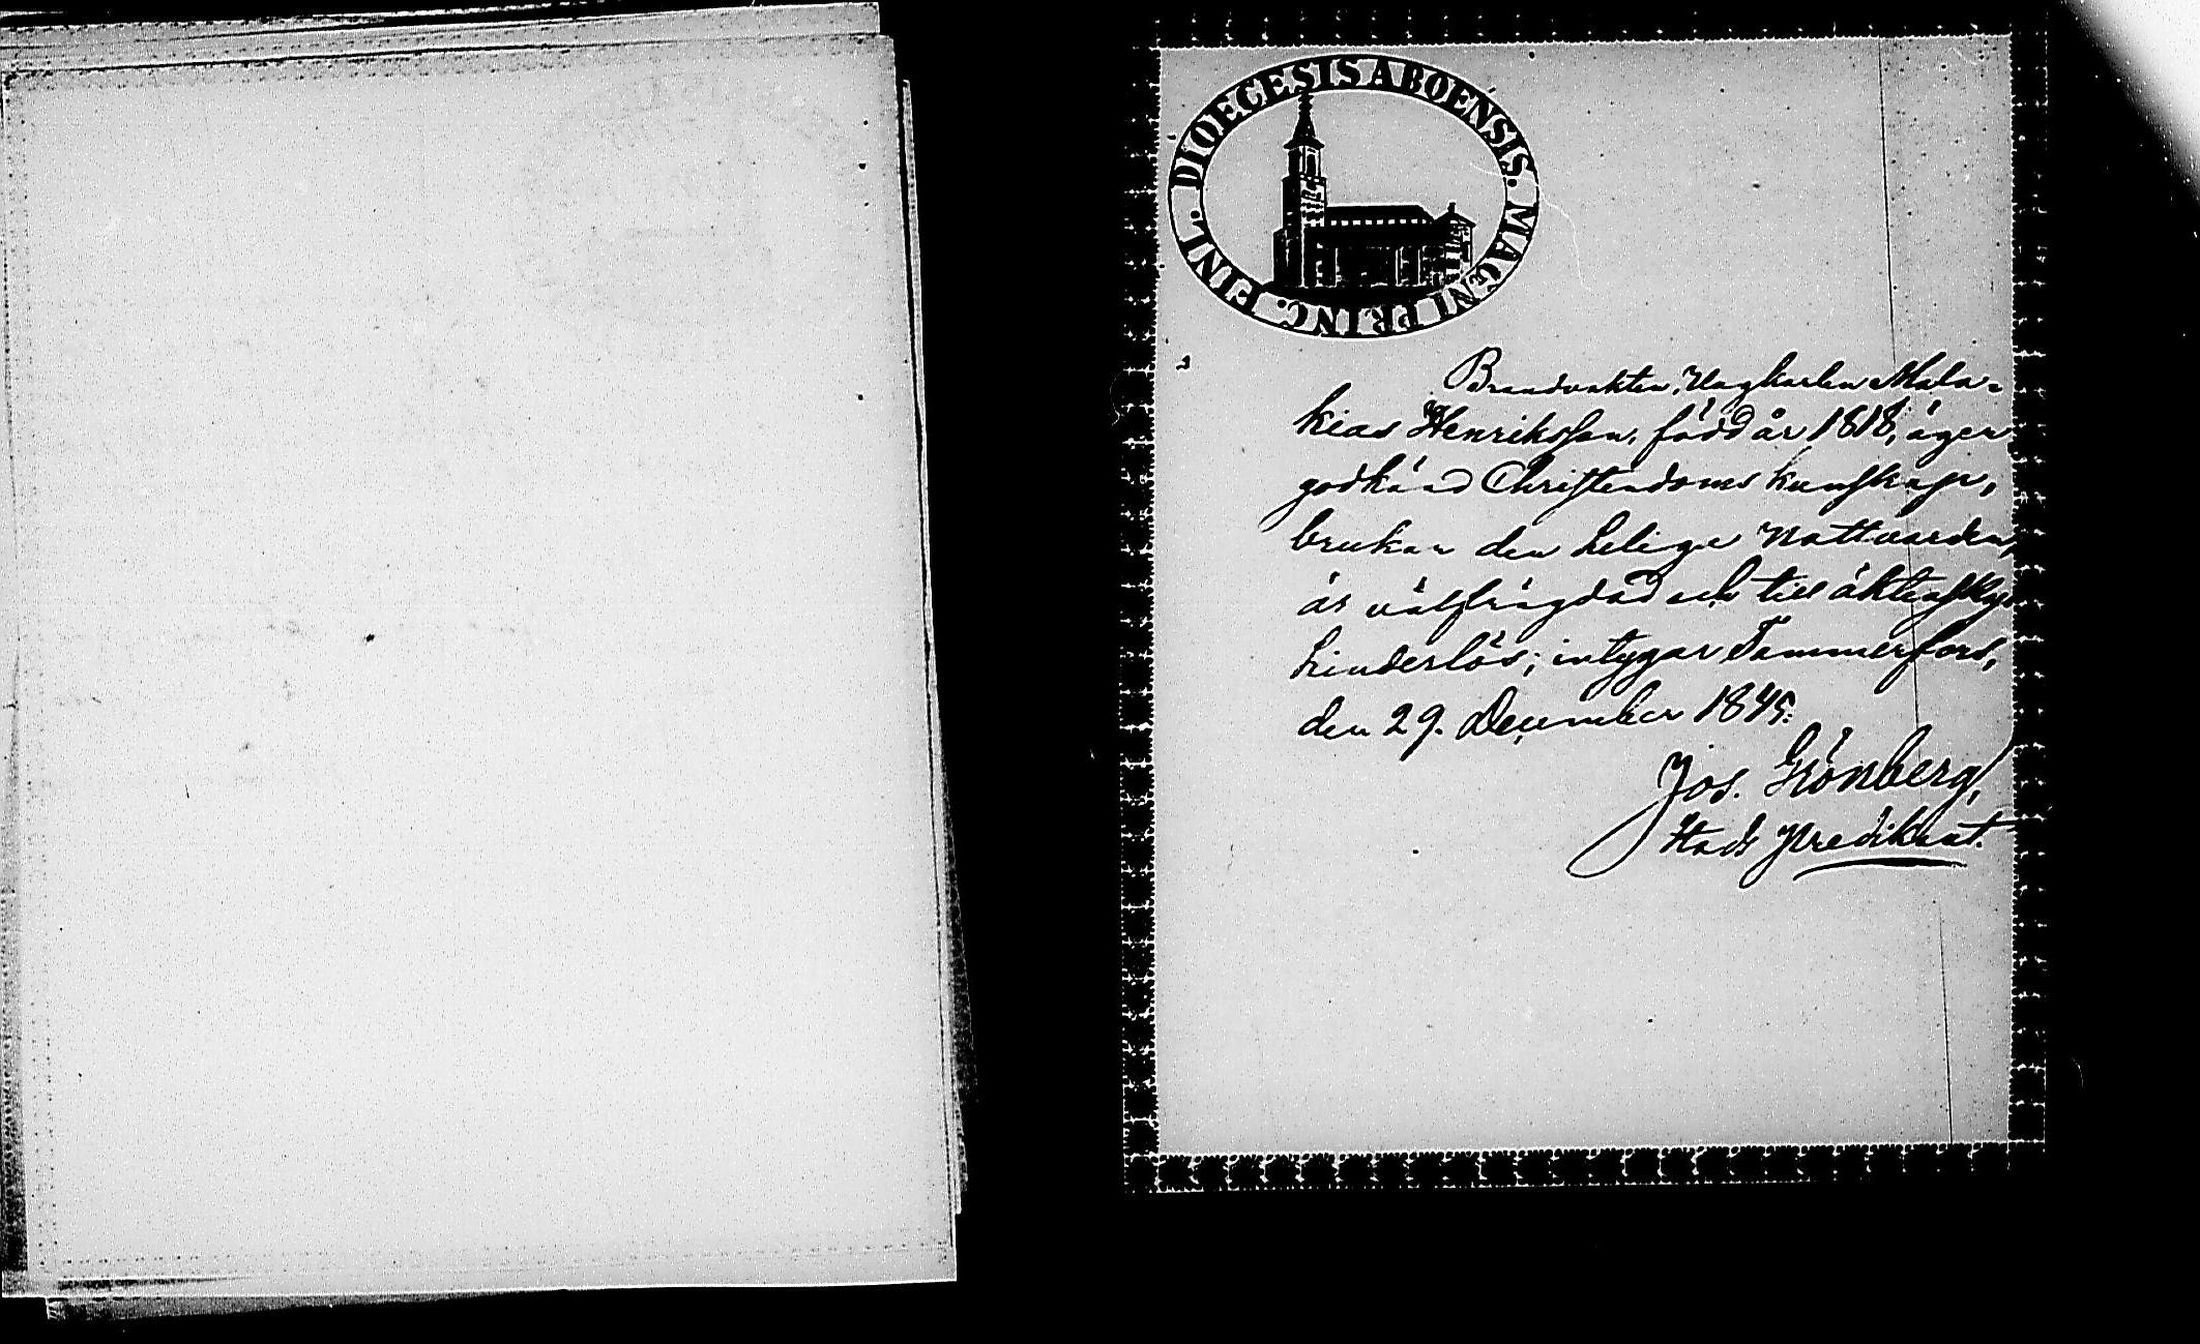 DIOECESIS ABOENSIS. MAGNI PRINC. FINL.
Brandvakten, Ungkarlen Mala-
kias Henriksson, född år 1818, äger
godkänd Christendoms kunskap,
brukar den heliga Nattvarden,
är välfrägdad och till äktenskap
hinderlös; intygar Tammerfors,
den 29. December 1845.
Jos. Grönberg,
Stads Predikant.